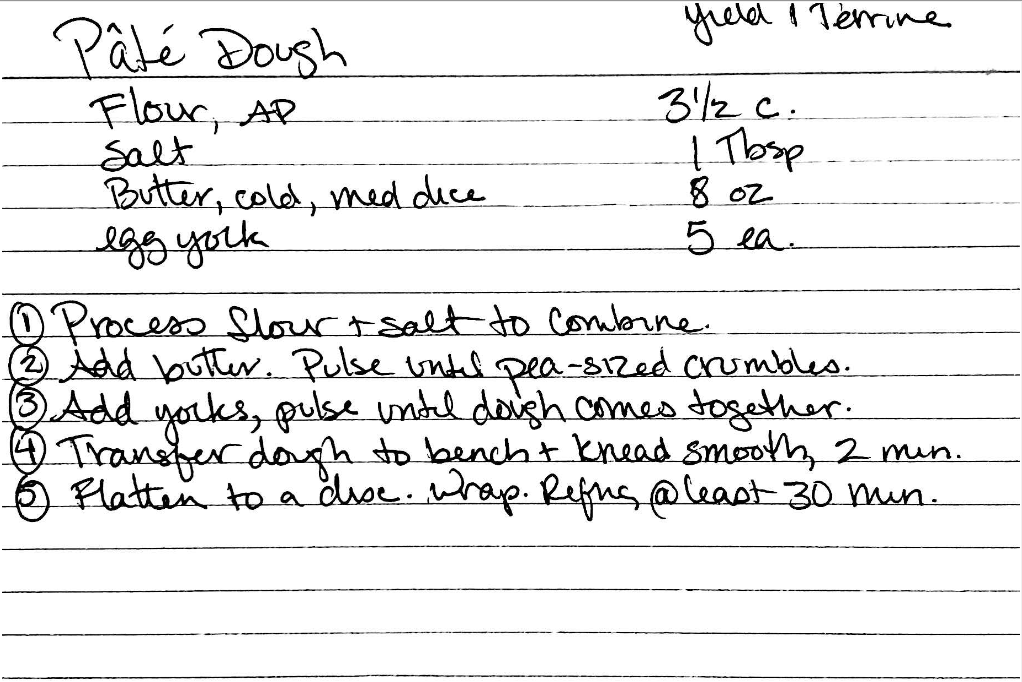 Pâté Dough yield 1 Terrine
Flour, AP 3 1/2 c.
Salt 1 Tbsp
Butter, cold, med dice 8 oz
egg yolk 5 ea.
① Process flour + salt to combine.
② Add butter. Pulse until pea-sized crumbles.
③ Add yolks, pulse until dough comes together.
④ Transfer dough to bench + knead smooth, 2 min.
⑤ Flatten to a disc. Wrap. Refrig @ least 30 min.